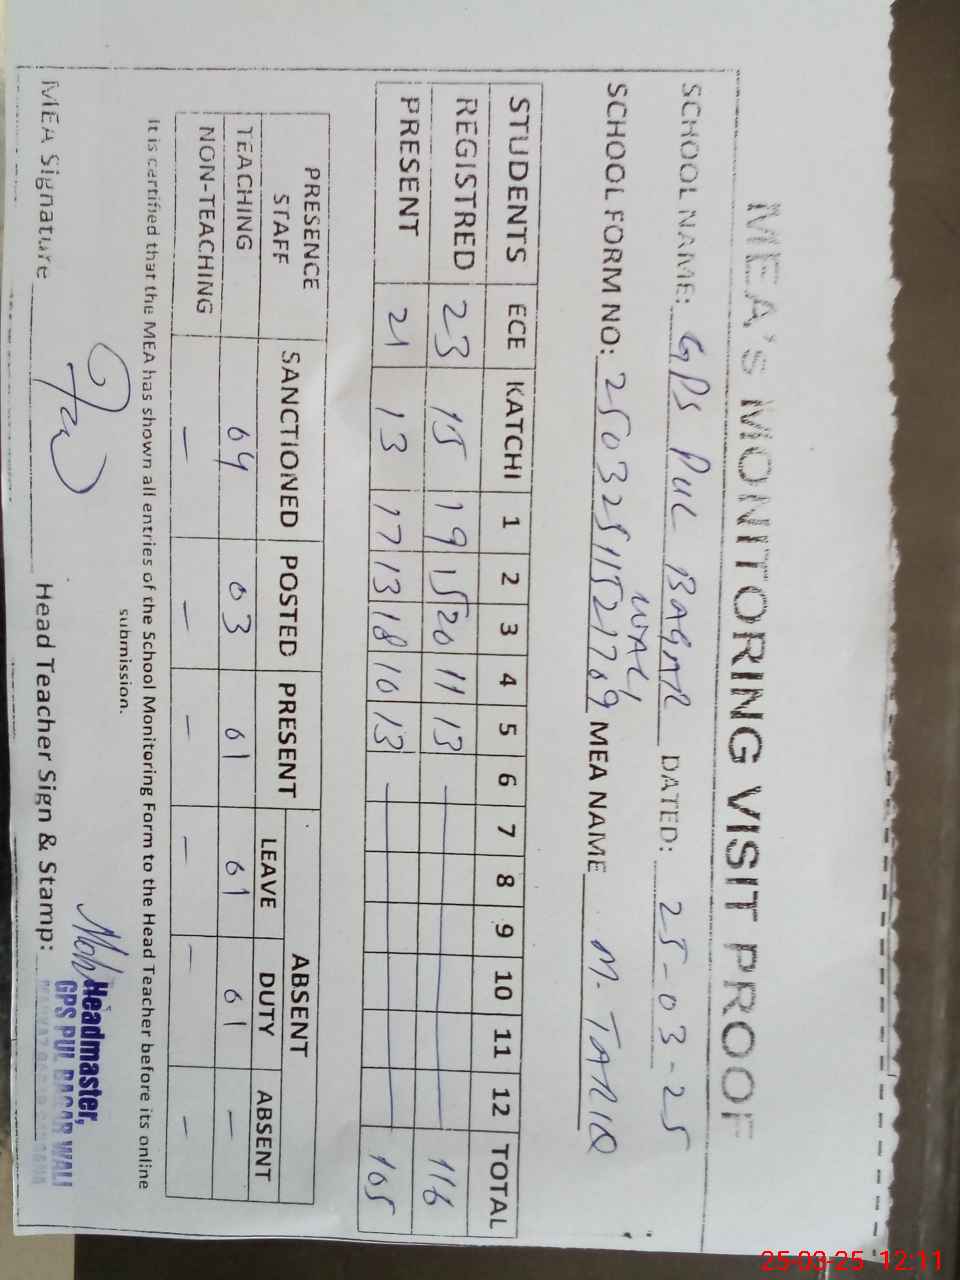 MEA'S MONITORING VISIT PROOF
SCHOOL NAME: GPS PUL BAGAR WALI DATED: 25-03-25
SCHOOL FORM NO: 25032511521789 MEA NAME M. TARIQ
STUDENTS ECE KATCHI 1 2 3 4 5 6 7 8 9 10 11 12 TOTAL
REGISTRED 23 15 19 15 20 11 13 — 116
PRESENT 21 13 17 13 18 10 13 — 105
PRESENCE STAFF SANCTIONED POSTED PRESENT ABSENT
LEAVE DUTY ABSENT
TEACHING 04 03 01 01 01 —
NON-TEACHING — — — — — —
It is certified that the MEA has shown all entries of the School Monitoring Form to the Head Teacher before its online
submission.
MEA Signature Head Teacher Sign & Stamp:
Headmaster,
GPS PUL BAGAR WALI
25-03-25 12:11